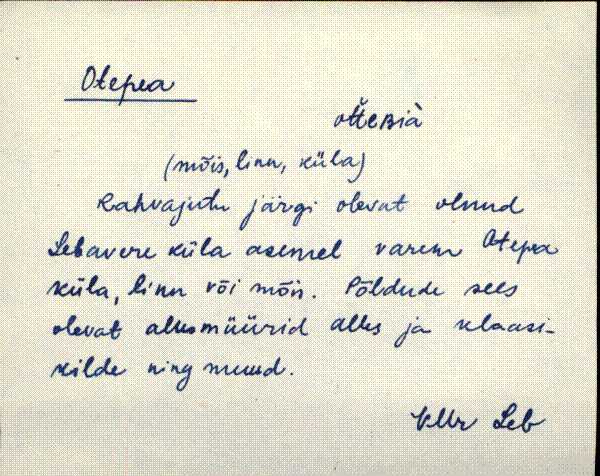 Otepea
(mõis, linn, küla)
Rahvajutu järgi olevat olnud
Lebavere küla asemel varem Otepea
küla, linn või mõis. Põldude sees
olevat alusmüürid alles ja klaasi-
kilde ning muud.
VMr Leb